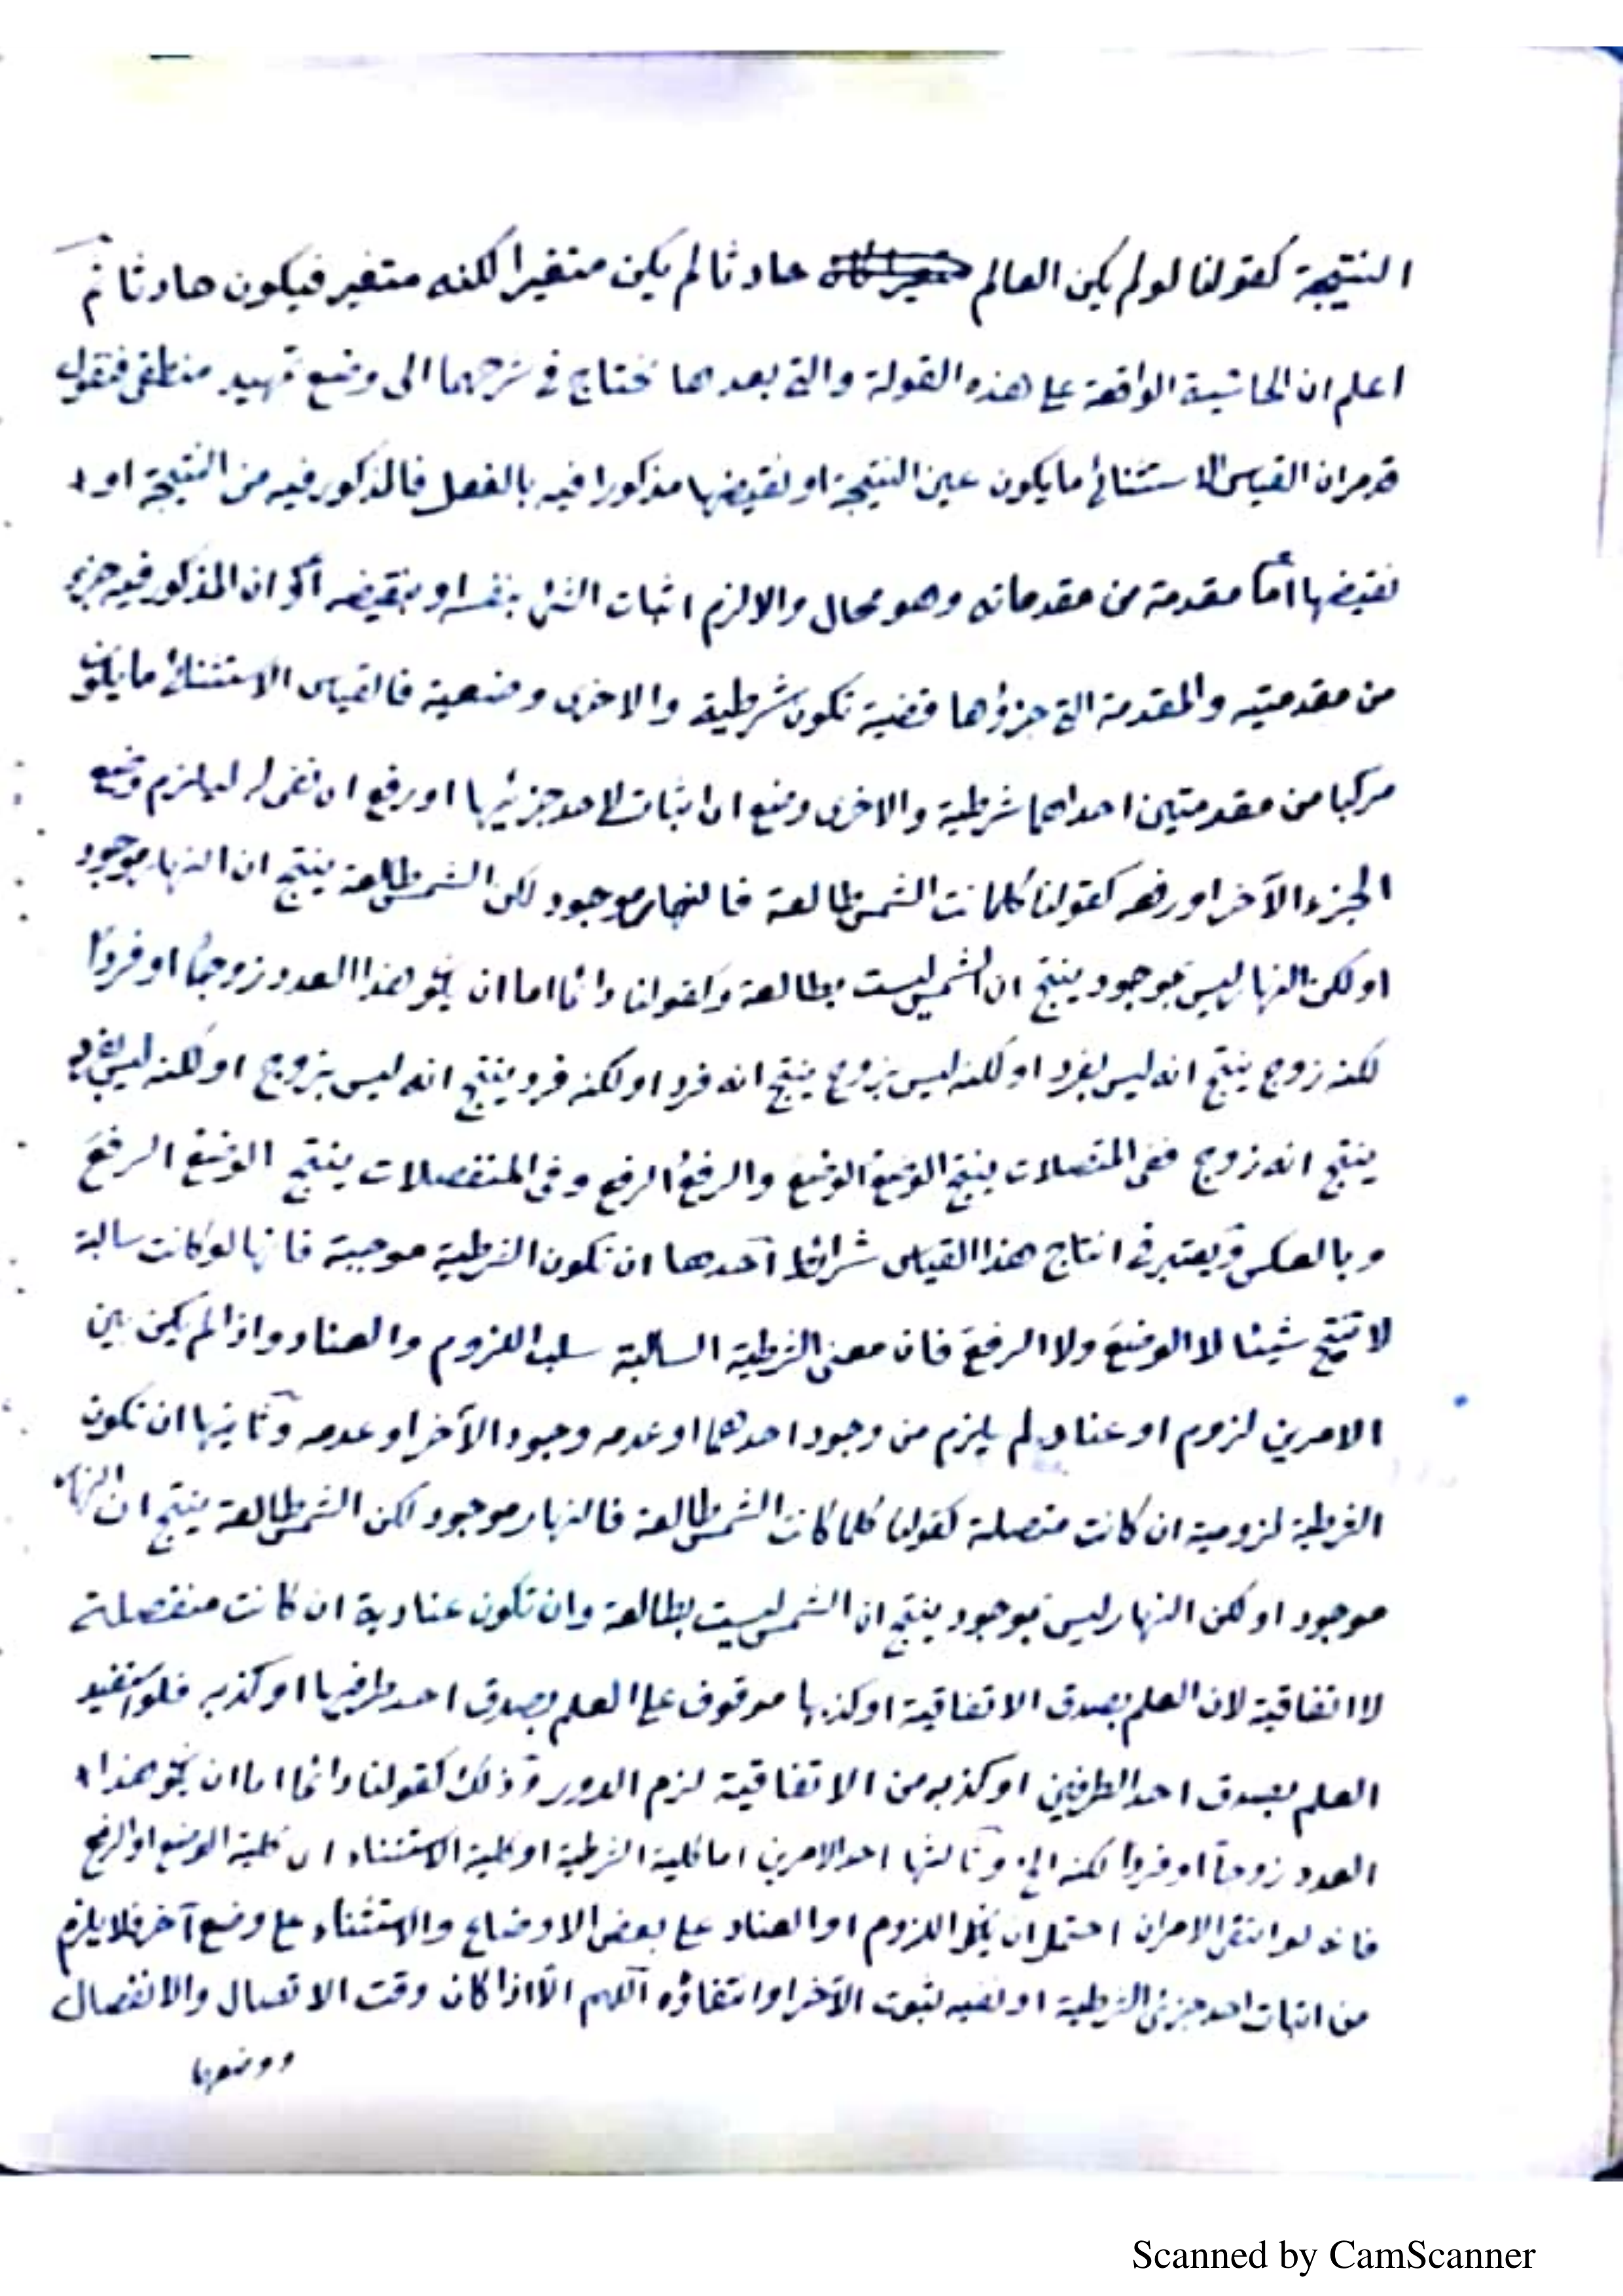 النتيجة كقولنا لو لم يكن العالم حادثا لم يكن متغيرا لكنه متغير فيكون حادثا ثم
اعلم ان الحاشية الواقعة على هذه القولة والتى بعدها تحتاج فى شرحهما الى وضع تمهيد منطقى فنقول
قد مر ان القياس الاستثنائى ما يكون عين النتيجة او نقيضها مذكورا فيه بالفعل فالمذكور فيه من النتيجة او
نقيضها اما مقدمة من مقدماته وهو محال والا لزم اثبات الشئ بنفسه او بنقيضه او ان المذكور فيه جزء
من مقدمتيه والمقدمة التى جزؤها قضية تكون شرطية والاخرى وضعية فالقياس الاستثنائى ما يكون
مركبا من مقدمتين احداهما شرطية والاخرى وضع اى اثبات لاحد جزئيها او رفع اى نفى له ليلزم وضع
الجزء الآخر او رفعه كقولنا كلما كانت الشمس طالعة فالنهار موجود لكن الشمس طالعة ينتج ان النهار موجود
او لكن النهار ليس بموجود ينتج ان الشمس ليست بطالعة وكقولنا دائما اما ان يكون هذا العدد زوجا او فردا
لكنه زوج ينتج انه ليس بفرد او لكنه ليس بزوج ينتج انه فرد او لكنه فرد ينتج انه ليس بزوج او لكنه ليس بفرد
ينتج انه زوج ففى المتصلات ينتج الوضع الوضع والرفع الرفع وفى المنفصلات ينتج الوضع الرفع
وبالعكس ويعتبر فى انتاج هذا القياس شرائط احدها ان تكون الشرطية موجبة فانها لو كانت سالبة
لا تنتج شيئا لا الوضع ولا الرفع فان معنى الشرطية السالبة سلب اللزوم والعناد واذا لم يكن بين
الامرين لزوم او عناد لم يلزم من وجود احدهما او عدمه وجود الآخر او عدمه وثانيها ان تكون
الشرطية لزومية ان كانت متصلة كقولنا كلما كانت الشمس طالعة فالنهار موجود لكن الشمس طالعة ينتج ان النهار
موجود او لكن النهار ليس بموجود ينتج ان الشمس ليست بطالعة وان تكون عنادية ان كانت منفصلة
لا اتفاقية لان العلم بصدق الاتفاقية او كذبها موقوف على العلم بصدق احد طرفيها او كذبه فلو استفيد
العلم بصدق احد الطرفين او كذبه من الاتفاقية لزم الدور وذلك كقولنا دائما اما ان يكون هذا
العدد زوجا او فردا لكنه الخ وثالثها احد الامرين اما كلية الشرطية او كلية الاستثناء اى كلية الوضع او الرفع
فانه لو انتفى الامران احتمل ان يكون اللزوم او العناد على بعض الاوضاع والاستثناء على وضع آخر فلا يلزم
من اثبات احد جزئى الشرطية او نفيه ثبوت الآخر او انتفاؤه اللهم الا اذا كان وقت الاتصال والانفصال
ووضعهما
Scanned by CamScanner